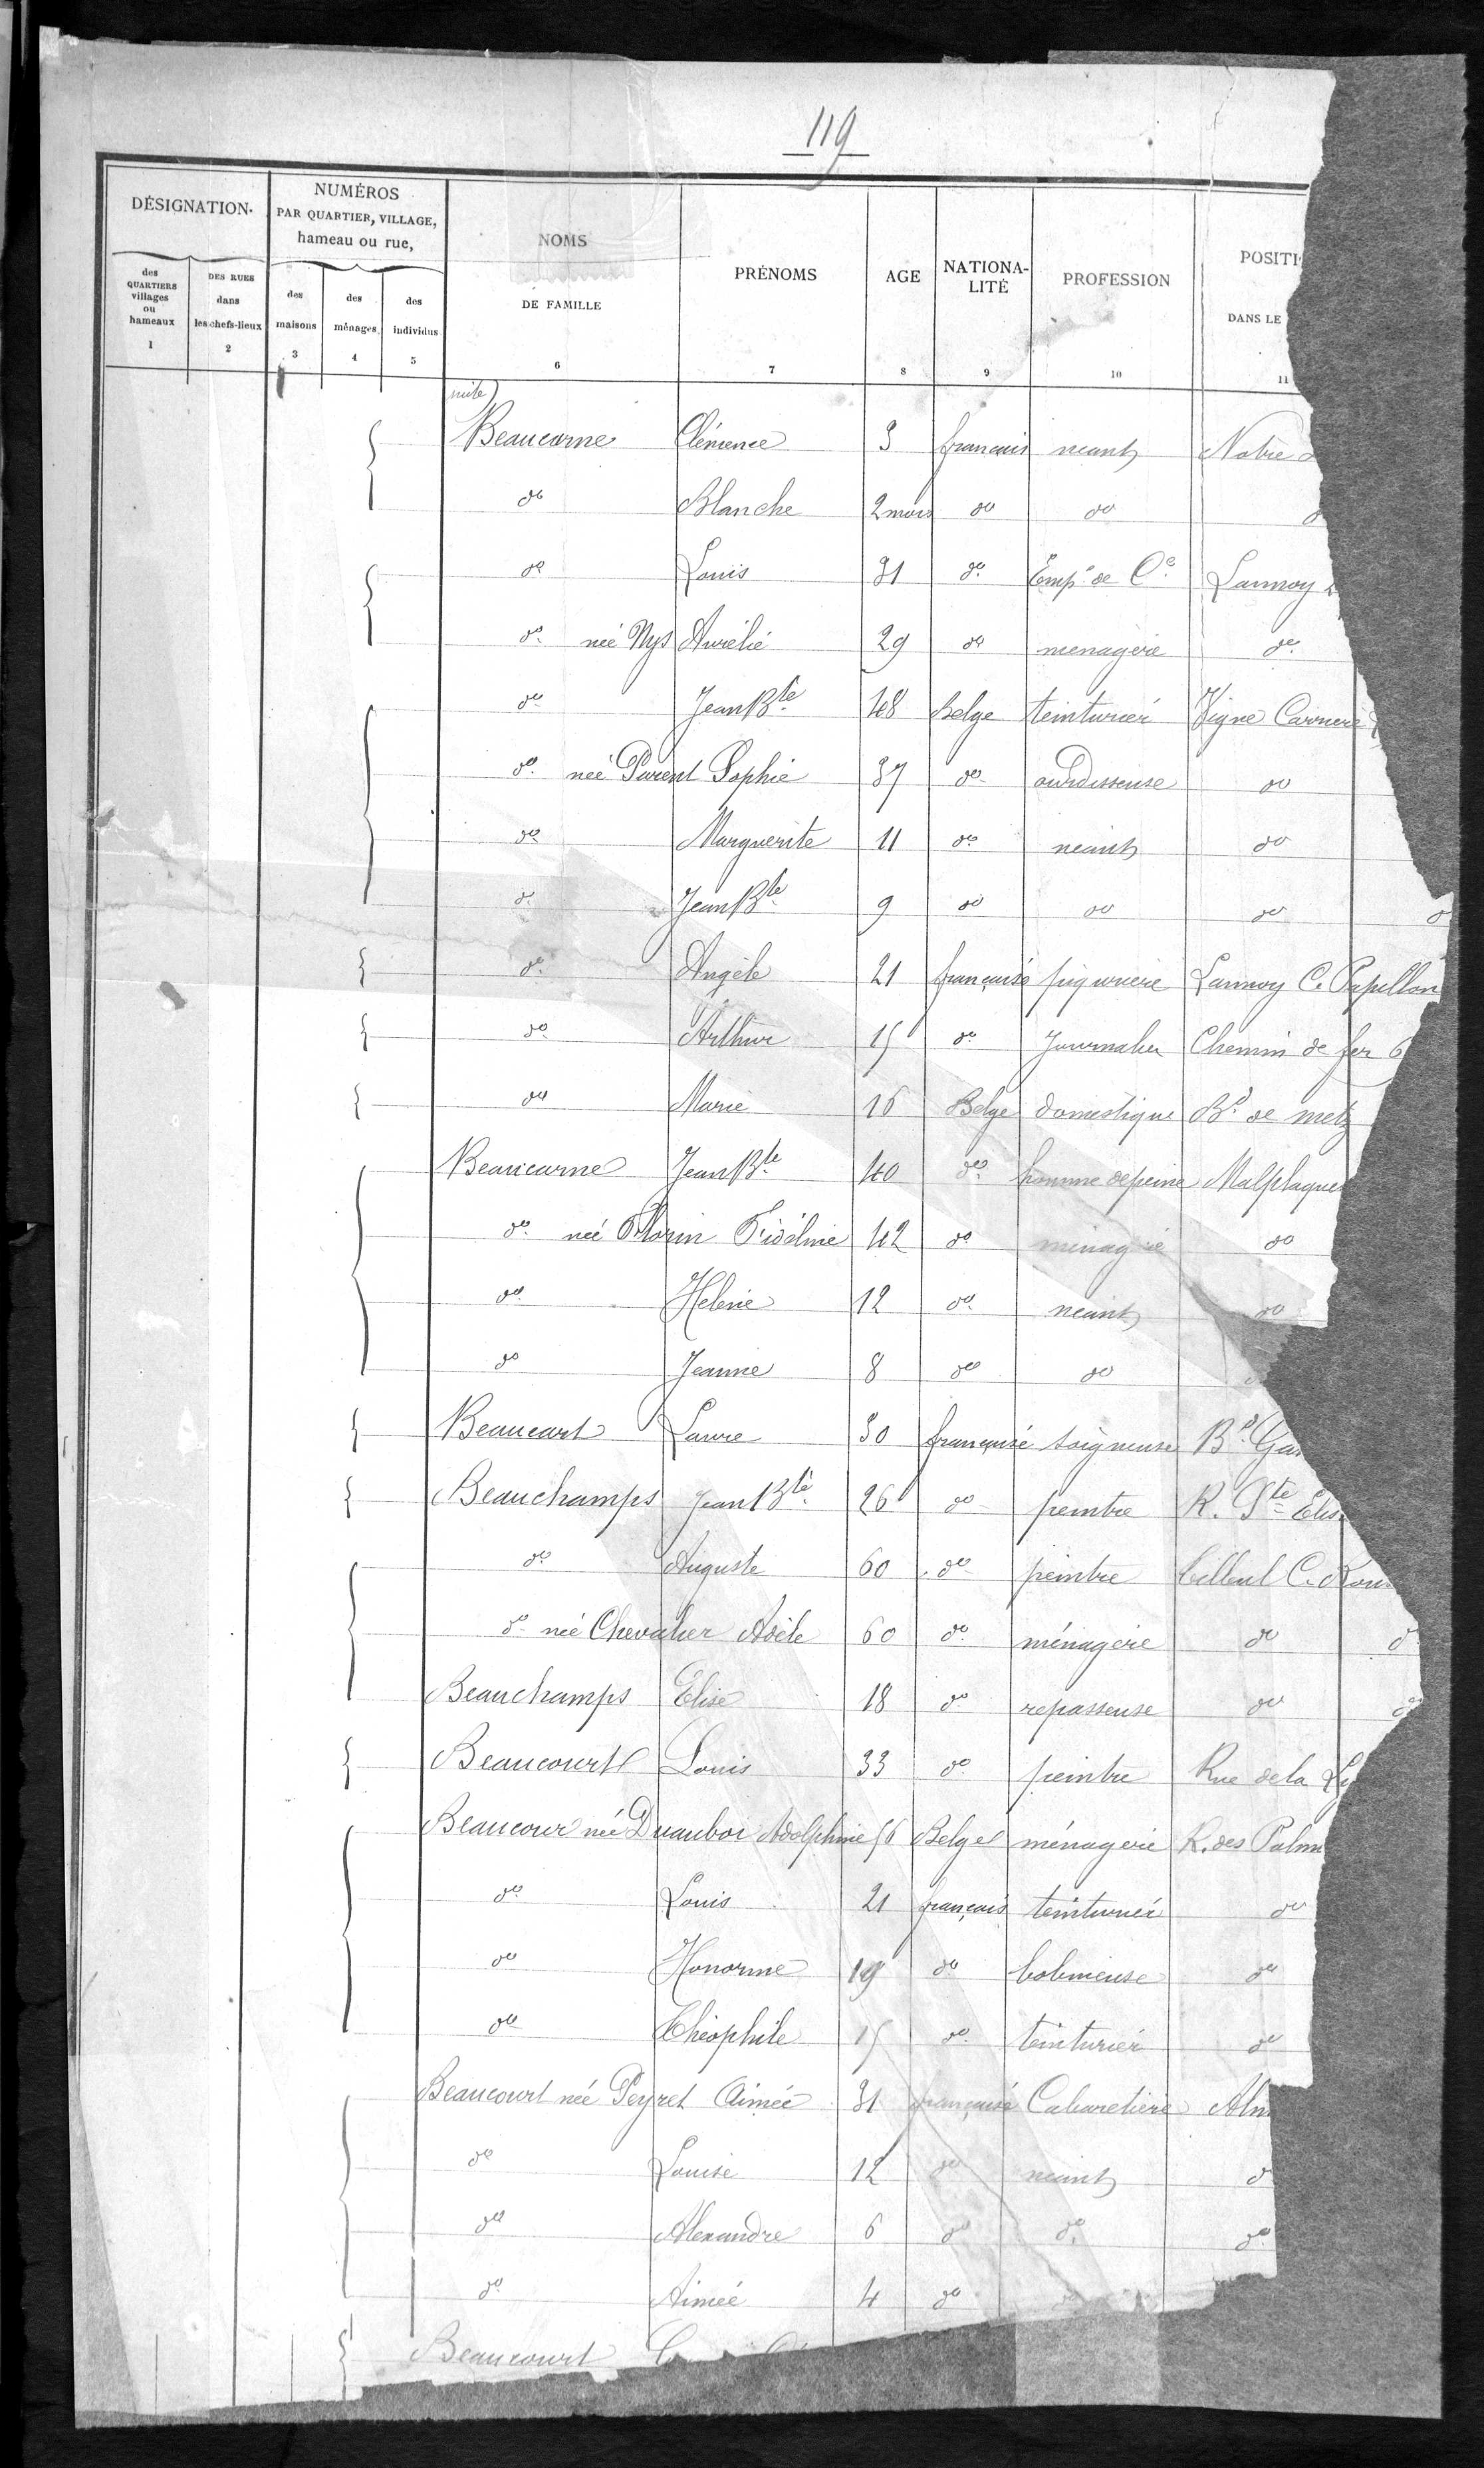 119
DÉSIGNATION.
NUMÉROS
PAR QUARTIER, VILLAGE,
hameau ou rue,
NOMS
DE FAMILLE
PRÉNOMS
AGE
NATIONA-
LITÉ
PROFESSION
POSITI
DANS LE
des
QUARTIERS
villages
ou
hameaux
DES RUES
dans
les chefs-lieux
des
maisons
des
ménages
des
individus
1 2 3 4 5 6 7 8 9 10 11
suite
Beaucarne Clémence 3 français neant Notre
do Blanche 2 mois do do
do Louis 31 do Empé de Ce Lannoy
do née Nys Aurélie 29 do menagère do
do Jean Bte 48 Belge teinturier Vigne Carriere
do née Parent Sophie 37 do ourdisseuse do
do Marguerite 11 do neant do
do Jean Bte 9 do do do
do Angèle 21 française piqurière Lannoy C. Papillon
do Arthur 15 do Journalier Chemin de fer 6
do Marie 16 Belge domestique Bd de metz
Beaucarne Jean Bte 40 do homme de peine Malplaque
do née Florin Fidéline 42 do ménagère do
do Helène 12 do neant do
do Jeanne 8 do do
Beaucart Laure 30 française soigneuse Bd Ga
Beauchamps Jean Bte 26 do peintre R. Ste Elis
do Auguste 60 do peintre tilleul C. Rou
do née Chevalier Adèle 60 do ménagère do
Beauchamps Elise 18 do repasseuse do
Beaucourt Louis 33 do peintre Rue de la Ly
Beaucour née Duauboi Adolphine 56 Belge ménagère R. des Palm
do Louis 21 français teinturier do
do Honorine 19 do bobineuse do
do Théophile 15 do teinturier do
Beaucourt née Peyret Aimée 31 française Cabaretière Alm
do Louise 12 do neant d
do Alexandre 6 do do do
do Aimée 4 do do
Beaucourt